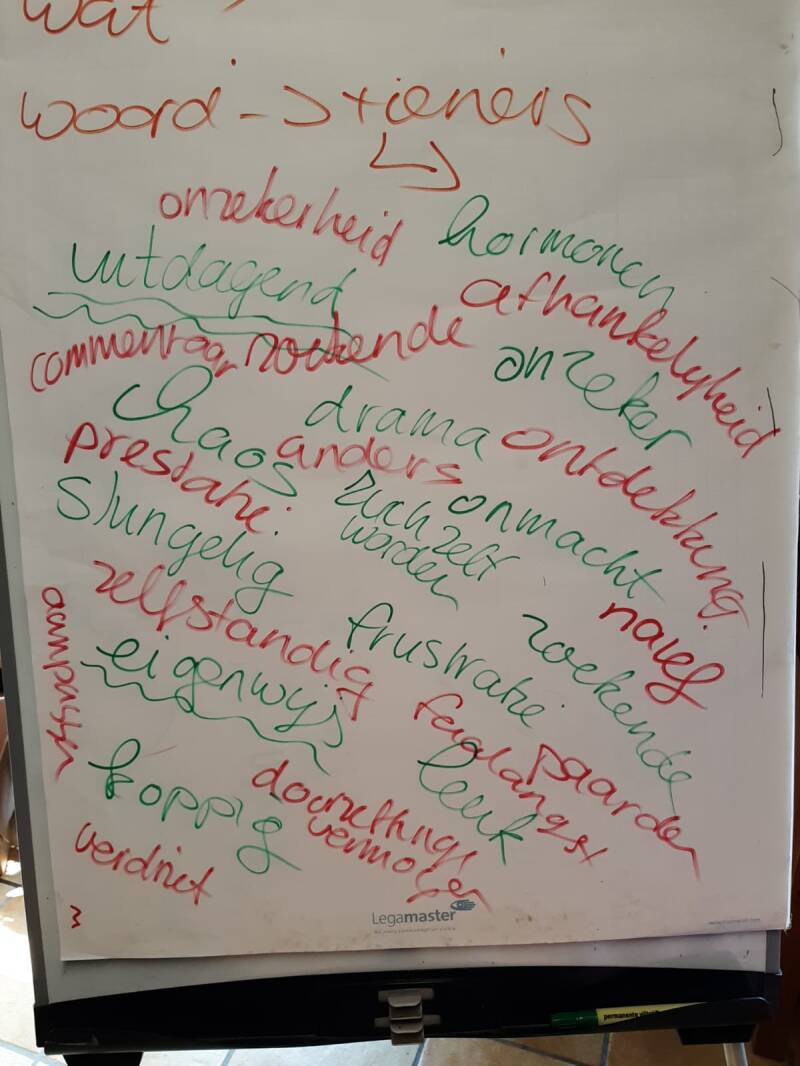 wat
woord -> tieners
onzekerheid
hormonen
uitdagend
afhankelyheid
commentaar
zoekende
onzeker
chaos
drama
ontdekking.
prestatie.
anders
zich zelf
worden
onmacht
slungelig
naief
zelfstandig
frustratie
zoekende
aanpassen
eigenwijs
faalangst
paarden
koppig
leuk
doorzettings
vermogen
verdriet
Legamaster